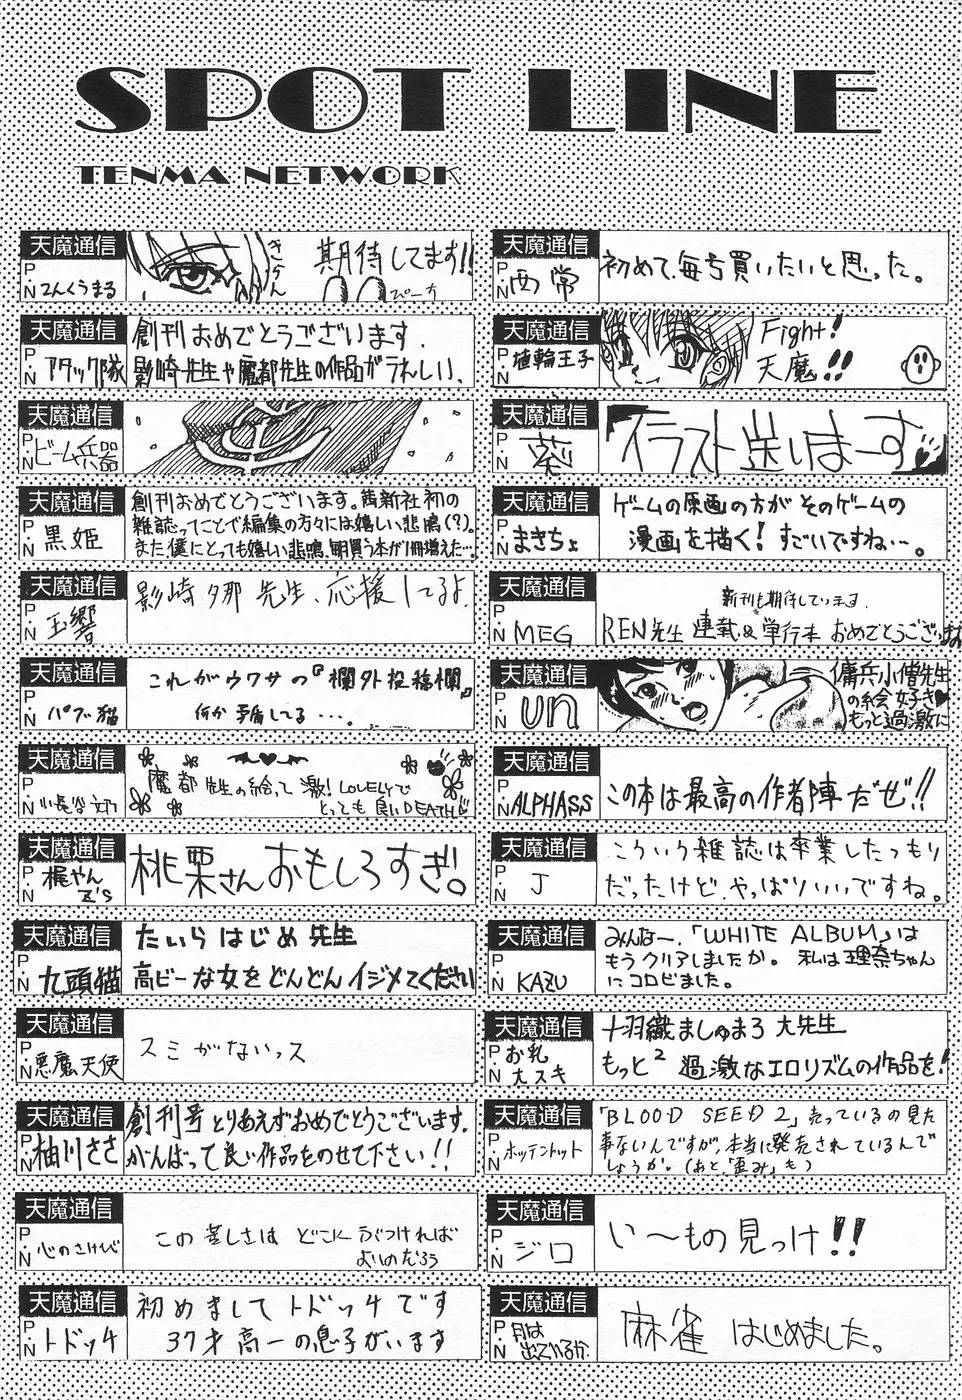 SPOT LINE
TENMA NETWORK
天魔通信
P.N てんくうまる
きかん
期待してます!!
ぴーち
天魔通信
P.N アタック隊
創刊おめでとうございます.
影崎先生や魔都先生の作品がうれしい.
天魔通信
P.N ビーム兵器
天魔通信
P.N 黒姫
創刊おめでとうございます。茜新社初の
雑誌ってことで編集の方々には嬉しい悲鳴(?)。
また僕にとっても嬉しい悲鳴,毎月買う本が1冊増えた…
天魔通信
P.N 玉響
影崎夕那先生、応援してるよ.
天魔通信
P.N パブ猫
これがウワサの『欄外投稿欄』
何か矛盾してる・・・。
天魔通信
P.N
魔都先生の絵って激!LOVELYで
とっても良いDEATH
天魔通信
P.N 梶やんZ's
桃栗さんおもしろすぎ。
天魔通信
P.N 九頭猫
たいらはじめ先生
高ピーな女をどんどんイジメてください
天魔通信
P.N 悪魔天使
スミがないっス
天魔通信
P.N 柚川ささ
創刊号とりあえずおめでとうございます.
がんばって良い作品をのせて下さい!!
天魔通信
P.N 心のさけび
この苦しさはどこにぶつければ
よいのだろう
天魔通信
P.N トドッチ
初めましてトドッチです
37才高一の息子がいます
天魔通信
P.N 西常
初めて、毎号買いたいと思った。
天魔通信
P.N 埴輪王子
Fight!
天魔!!
天魔通信
P.N 葵
イラスト送りまーす
天魔通信
P.N まきちょ
ゲームの原画の方がそのゲームの
漫画を描く!すごいですね…。
天魔通信
P.N MEG
新刊も期待しています.
REN先生連載&単行本おめでとうございます
天魔通信
P.N un
傭兵小僧先生
の絵好き♥
もっと過激に
天魔通信
P.N ALPHASS
この本は最高の作者陣だぜ!!
天魔通信
P.N J
こういう雑誌は卒業したつもり
だったけど、やっぱりいいですね。
天魔通信
P.N KAZU
みんなー、「WHITE ALBUM」は
もうクリアしましたか。私は理奈ちゃん
にコロビました。
天魔通信
P.N お乳大スキ
十羽織ましゅまろ大先生
もっと² 過激なエロリズムの作品を!
天魔通信
P.N ホッテントット
「BLOOD SEED 2」売っているの見た
事ないんですが,本当に発売されているんで
しょうか。(あと「歪み」も)
天魔通信
P.N ジロ
い〜もの見っけ!!
天魔通信
P.N 月は出ているか
麻雀はじめました。